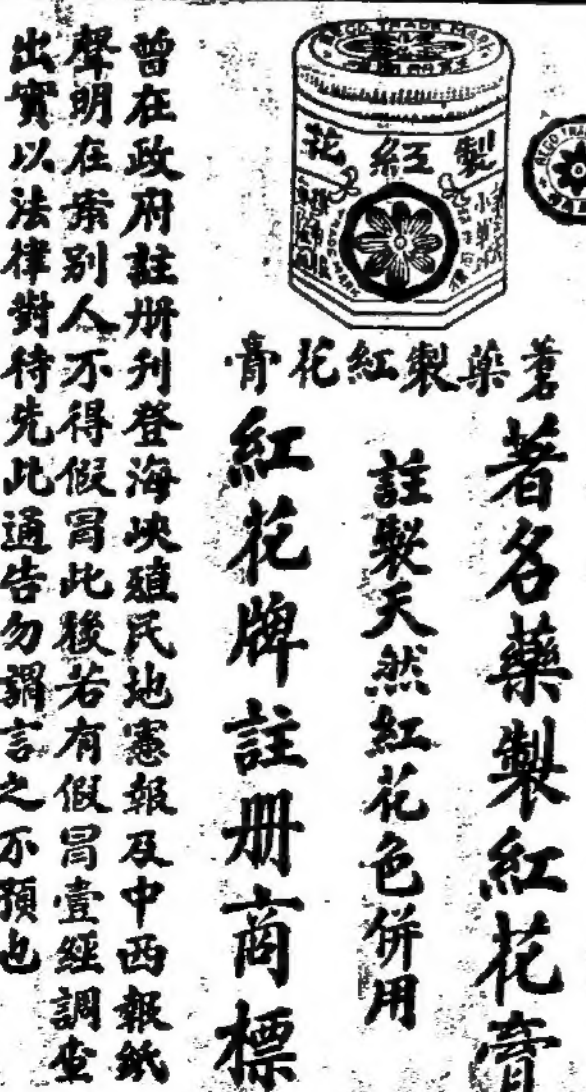 TRADE MARK
製紅花
蒼藥製紅花膏
著名藥製紅花膏
註製天然紅花色併用
紅花牌註册商標
曾在政府註册刊登海峽殖民地憲報及中西報紙
聲明在案別人不得假冒此後若有假冒壹經調查
出實以法律對待先此通告勿謂言之不預也